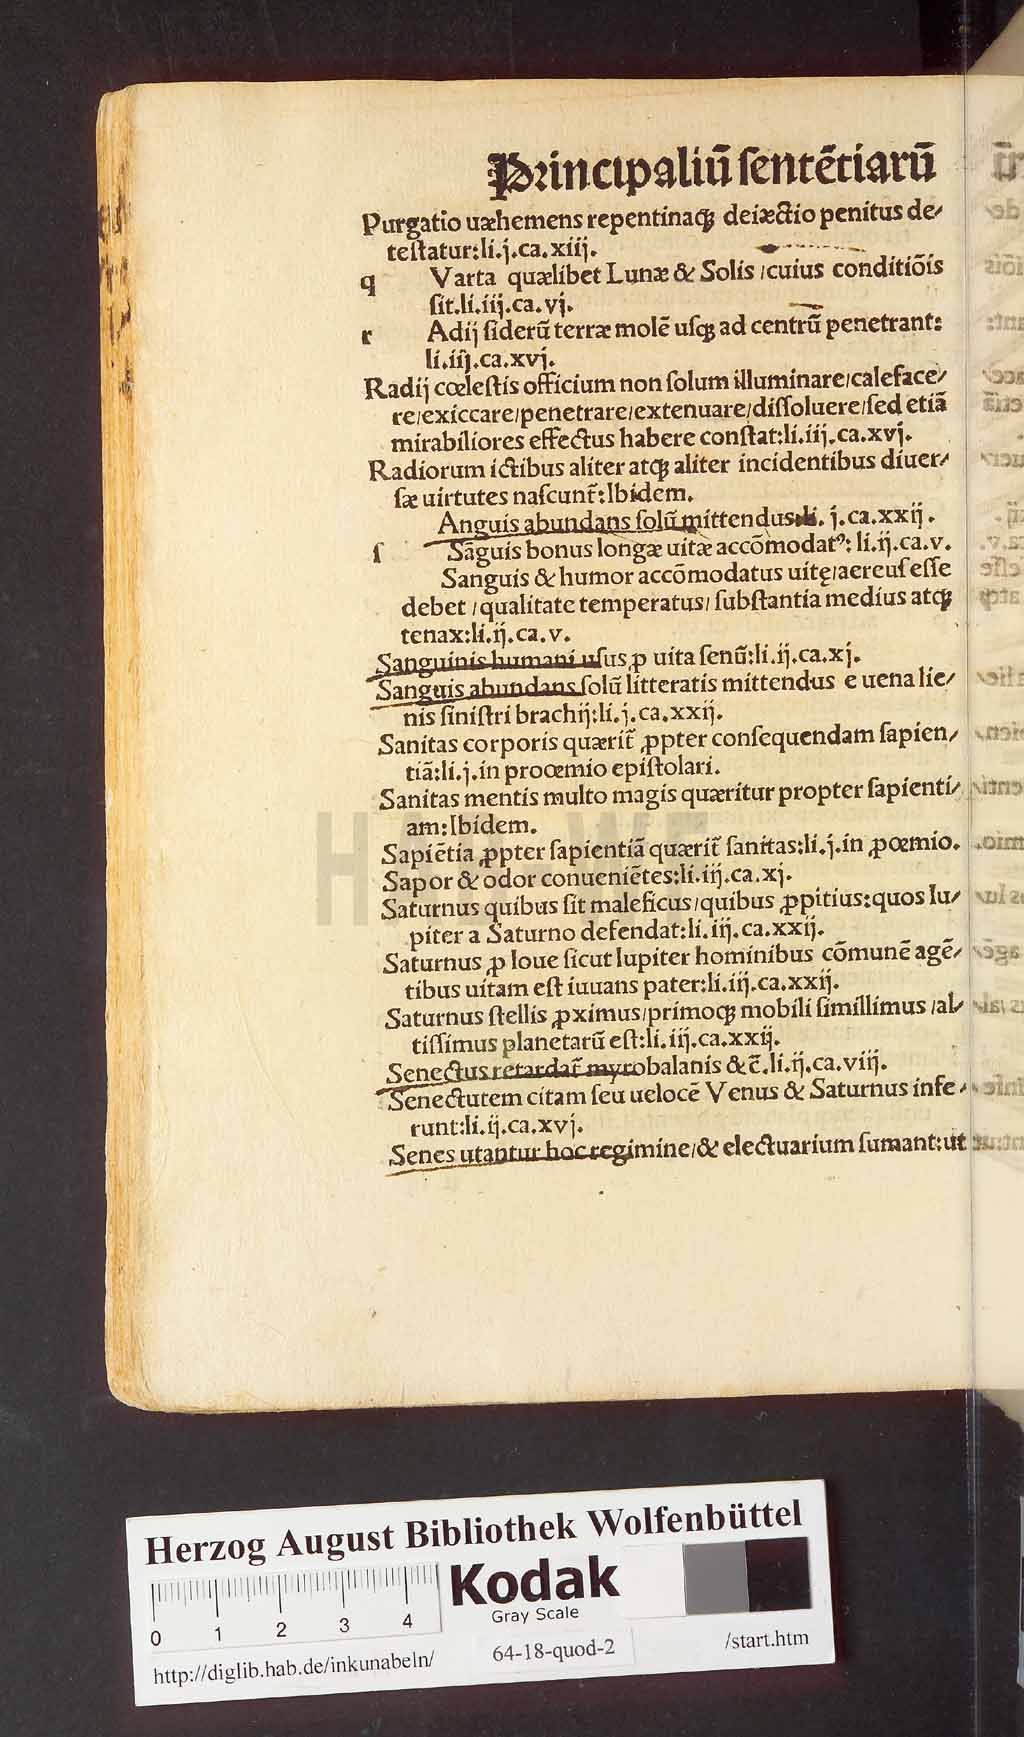 Principaliū ſentētiarū
Purgatio uæhemens repentinaqꝫ deiæctio penitus de⸗
teſtatur:li.j.ca.xiij.
q Varta quælibet Lunæ & Solis/cuius conditiōis
ſit.li.iij.ca.vj.
r Adij ſiderū terræ molē uſqꝫ ad centrū penetrant:
li.iij.ca.xvj.
Radij cœleſtis officium non ſolum illuminare/caleface⸗
re/exiccare/penetrare/extenuare/diſſoluere/ſed etiā
mirabiliores effectus habere conſtat:li.iij.ca.xvj.
Radiorum ictibus aliter atqꝫ aliter incidentibus diuer⸗
ſæ uirtutes naſcunt̄:Ibidem.
Anguis abundans ſolū mittendus:li. j.ca.xxij.
ſ Sāguis bonus longæ uitæ accōmodatꝰ: li.ij.ca.v.
Sanguis & humor accōmodatus uitę/aereuſ eſſe
debet/qualitate temperatus/ſubſtantia medius atqꝫ
tenax:li.ij.ca.v.
Sanguinis humani uſus ꝓ uita ſenū:li.ij.ca.xj.
Sanguis abundans ſolū litteratis mittendus e uena lie⸗
nis ſiniſtri brachij:li.j.ca.xxij.
Sanitas corporis quærit̄ ꝓpter conſequendam ſapien⸗
tiā:li.j.in proœmio epiſtolari.
Sanitas mentis multo magis quæritur propter ſapienti⸗
am:Ibidem.
Sapiētia ꝓpter ſapientiā quærit̄ ſanitas:li.j.in ꝓœmio.
Sapor & odor conueniētes:li.iij.ca.xj.
Saturnus quibus ſit maleficus/quibus ꝓpitius:quos Iu⸗
piter a Saturno defendat:li.iij.ca.xxij.
Saturnus ꝓ Ioue ſicut Iupiter hominibus cōmunē agē⸗
tibus uitam eſt iuuans pater:li.iij.ca.xxij.
Saturnus ſtellis ꝓximus/primoqꝫ mobili ſimillimus/al⸗
tiſſimus planetarū eſt:li.iij.ca.xxij.
Senectus retardat̄ myrobalanis & c̄.li.ij.ca.viij.
Senectutem citam ſeu uelocē Venus & Saturnus infe⸗
runt:li.ij.ca.xvj.
Senes utantur hoc regimine/& electuarium ſumant:ut
Herzog August Bibliothek Wolfenbüttel
Kodak
Gray Scale
0 1 2 3 4
http://diglib.hab.de/inkunabeln/ 64-18-quod-2 /start.htm